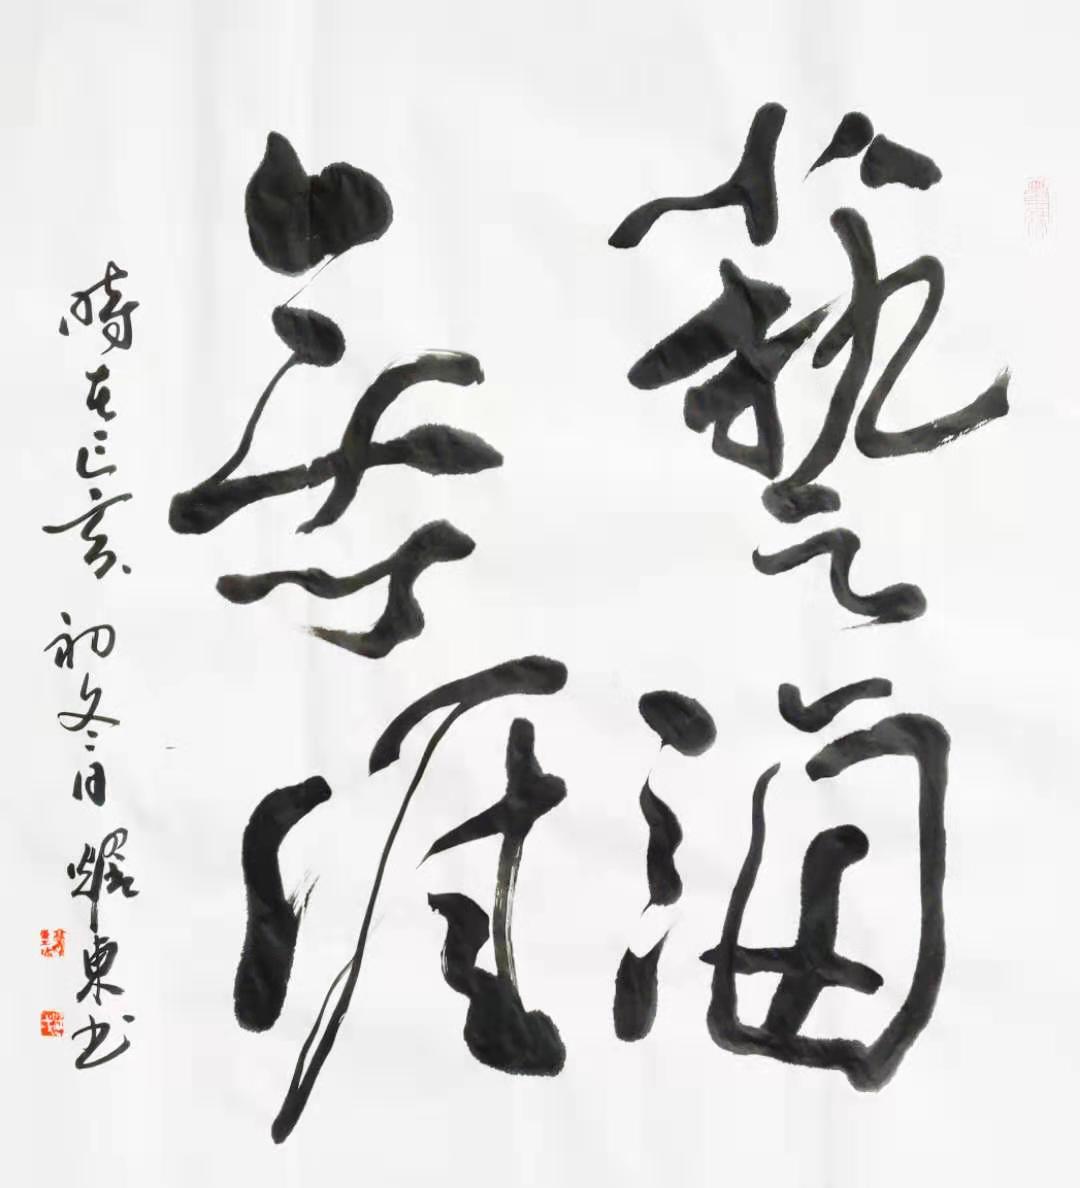 藝海
無涯
時在己亥初冬月耀東书